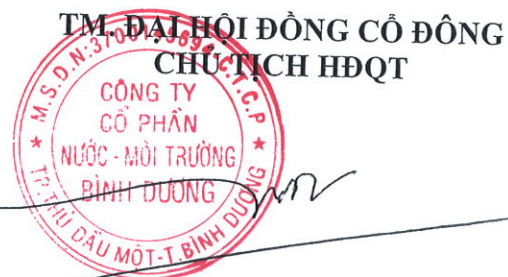 TM. ĐẠI HỘI ĐỒNG CỔ ĐÔNG
CHỦ TỊCH HĐQT
CÔNG TY
CỔ PHẦN
NƯỚC - MÔI TRƯỜNG
BÌNH DƯƠNG
TP.THỦ DẦU MỘT-T.BÌNH DƯƠNG